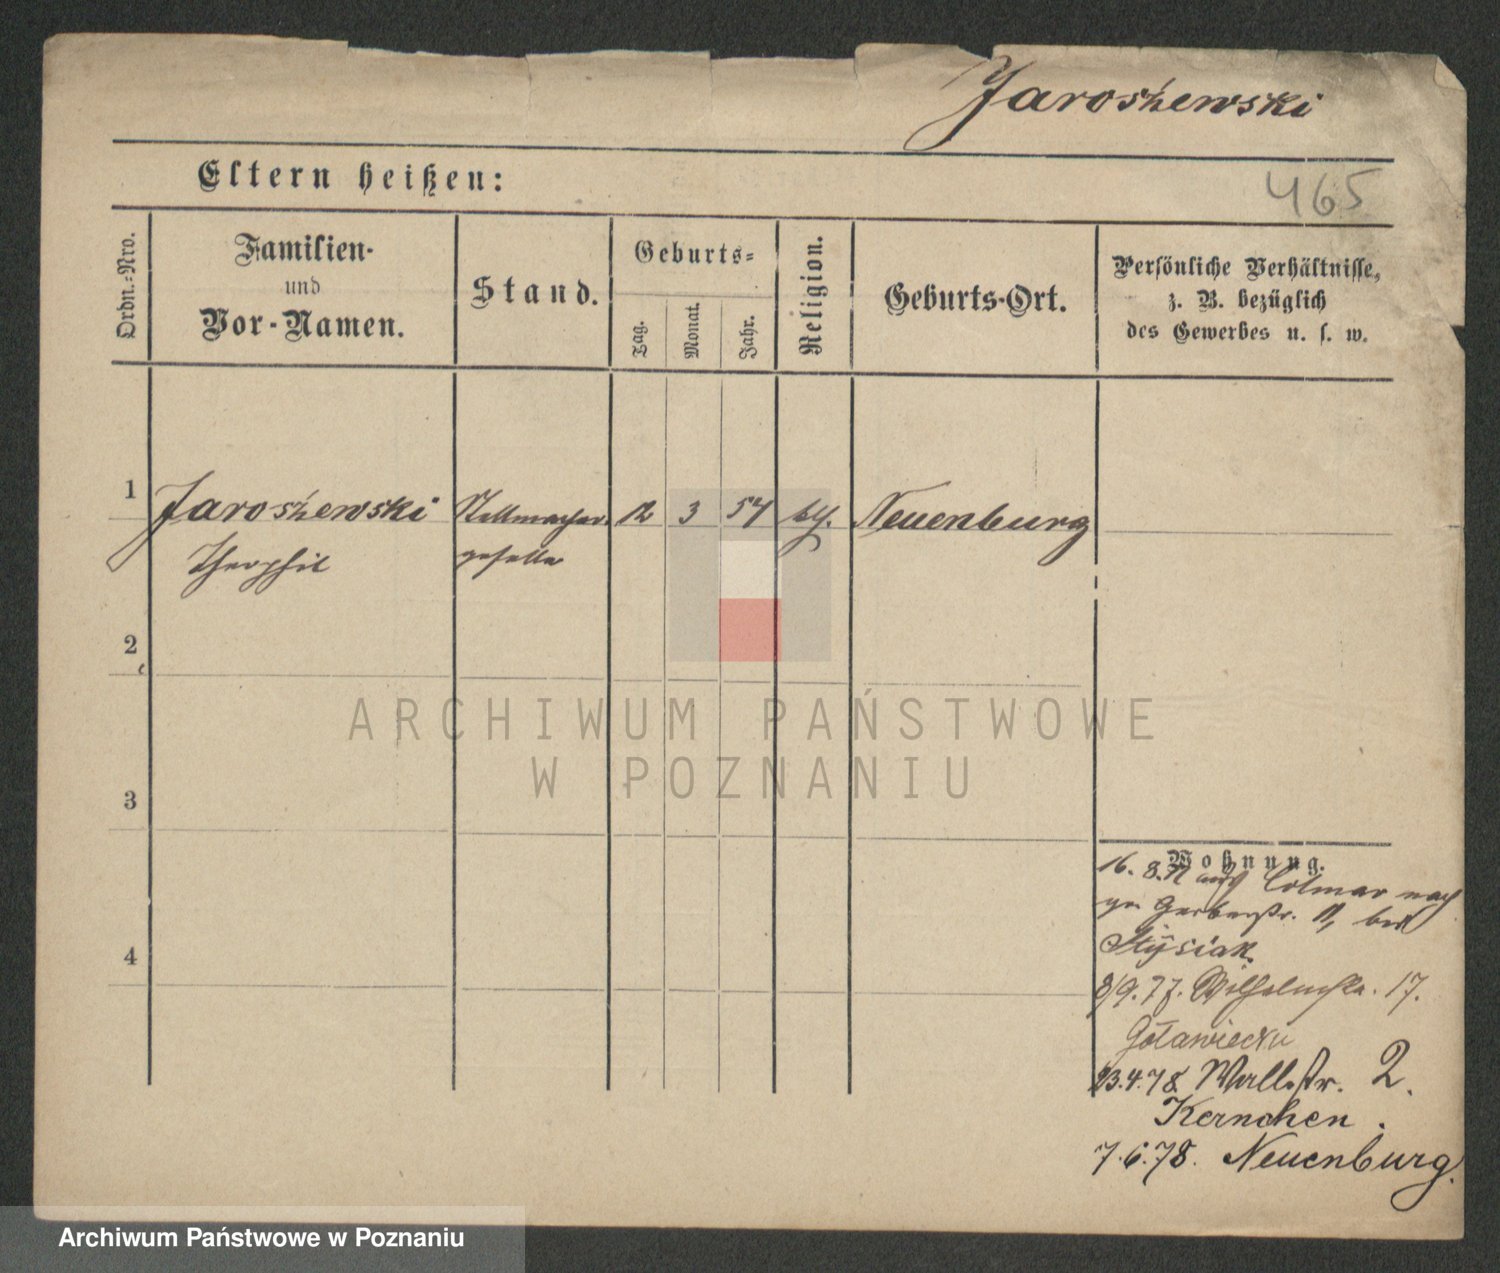 Jarosżewski
Eltern heißen:
465
Ordn.=Nro.
Familien-
und
Vor-Namen.
Stand.
Geburts=
Tag.
Monat.
Jahr.
Religion.
Geburts-Ort.
Persönliche Verhältnisse,
z. B. bezüglich
des Gewerbes u. s. w.
1
Jarosżewski
Theophil
Stellmacher-
geselle
12
3
54
Neuenburg
2
3
4
Wohnung.
16. 8. 77 aus Colmar nach
Gerberstr. 11, bei
Stysiak
8/9. 77. Wilhelmstr. 17.
Gołaniecki
13.4.78 Wallstr. 2.
Kernchen.
7.6.78. Neuenburg.
ARCHIWUM PAŃSTWOWE
W POZNANIU
Archiwum Państwowe w Poznaniu